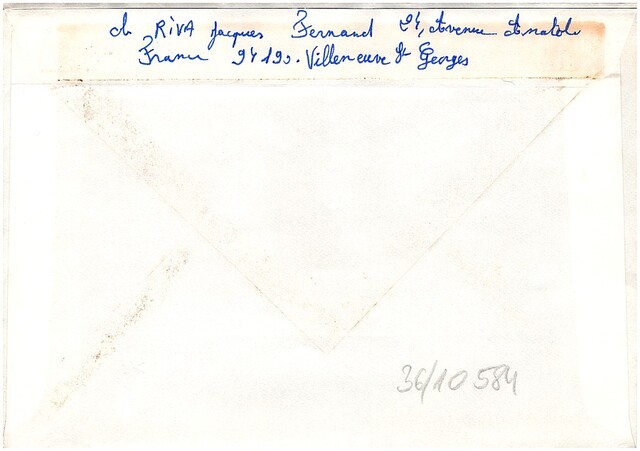 RIVA Jacques Fernand 24, Avenue Anatole
France 94190. Villeneuve St Georges
36/10584